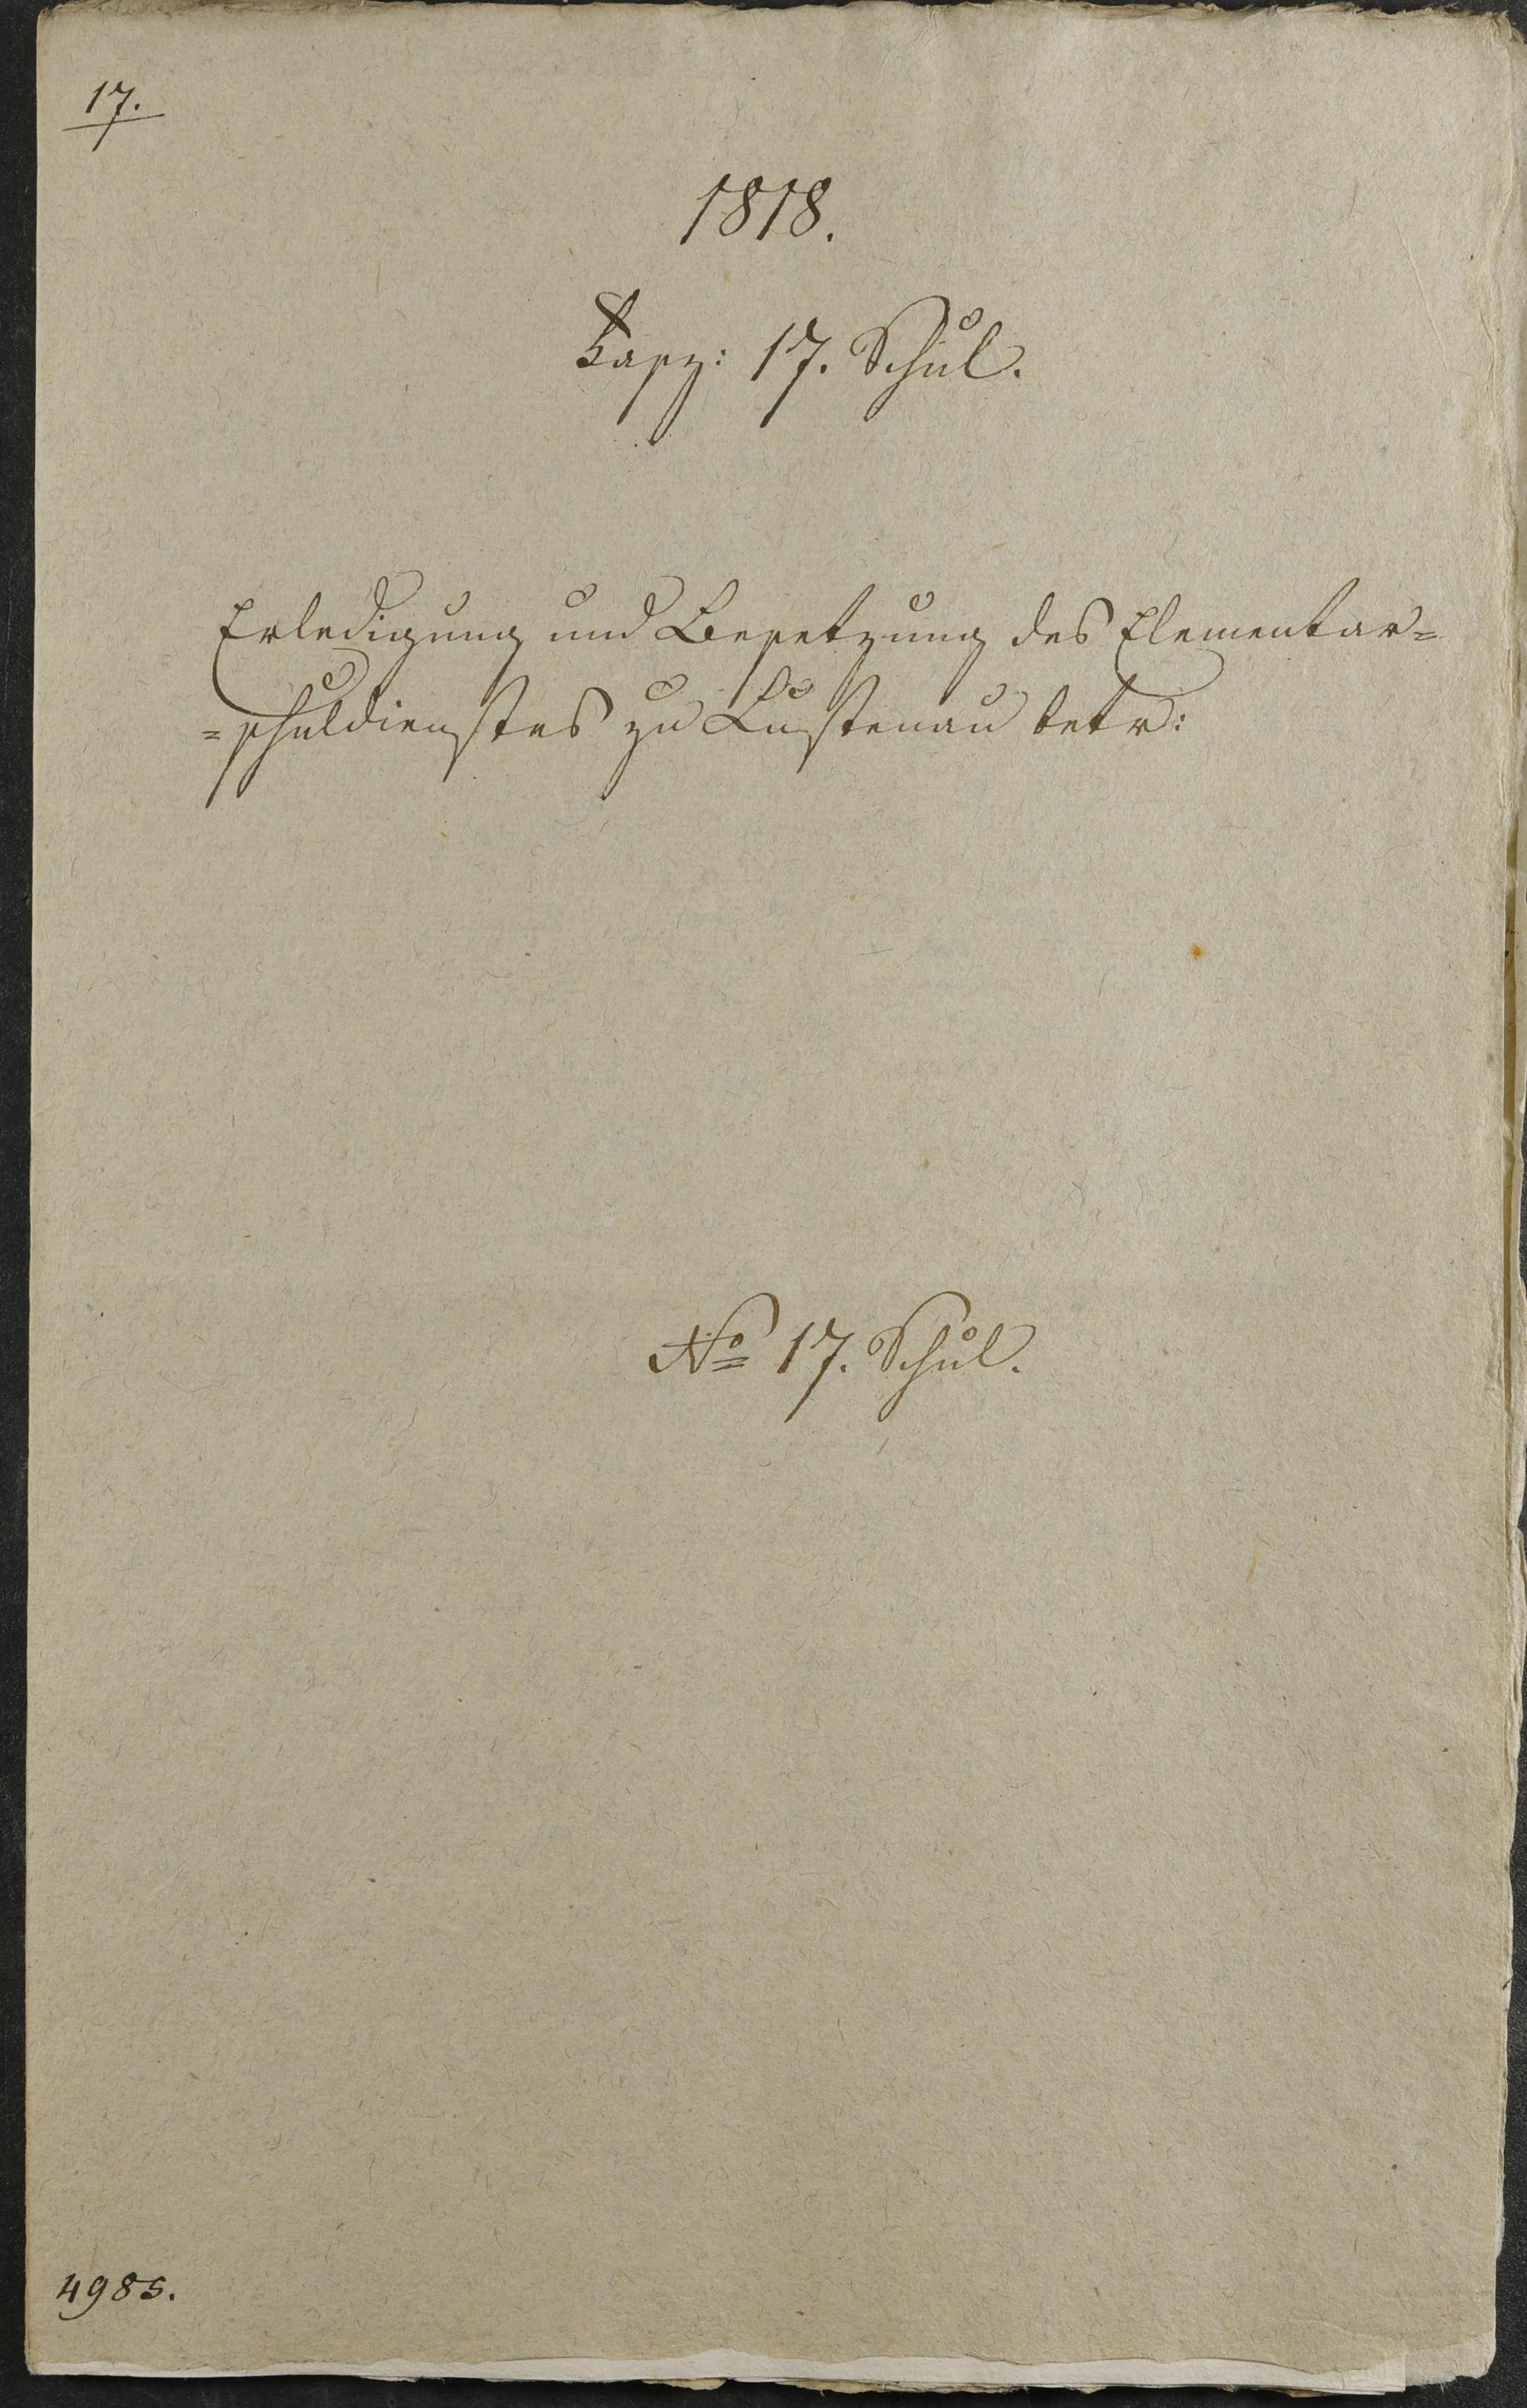 17.
1818.
Fasz: 17. Schul.
Erledigung und Besetzung des Elementar=
=schuldienstes zu Lustenau betr:
No 17. Schul.
4985.